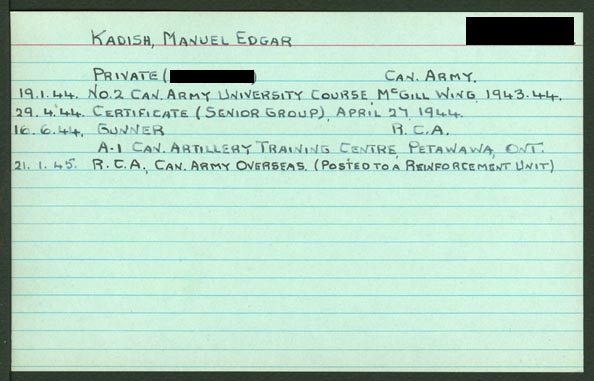 KADISH, MANUEL EDGAR
PRIVATE ( ) CAN. ARMY.
19.1.44. NO.2 CAN. ARMY UNIVERSITY COURSE, MCGILL WING, 1943-44.
29.4.44. CERTIFICATE (SENIOR GROUP), APRIL 27, 1944.
16.6.44. GUNNER R.C.A.
A-1 CAN. ARTILLERY TRAINING CENTRE, PETAWAWA, ONT.
21.1.45. R.C.A., CAN. ARMY OVERSEAS. (POSTED TO A REINFORCEMENT UNIT)